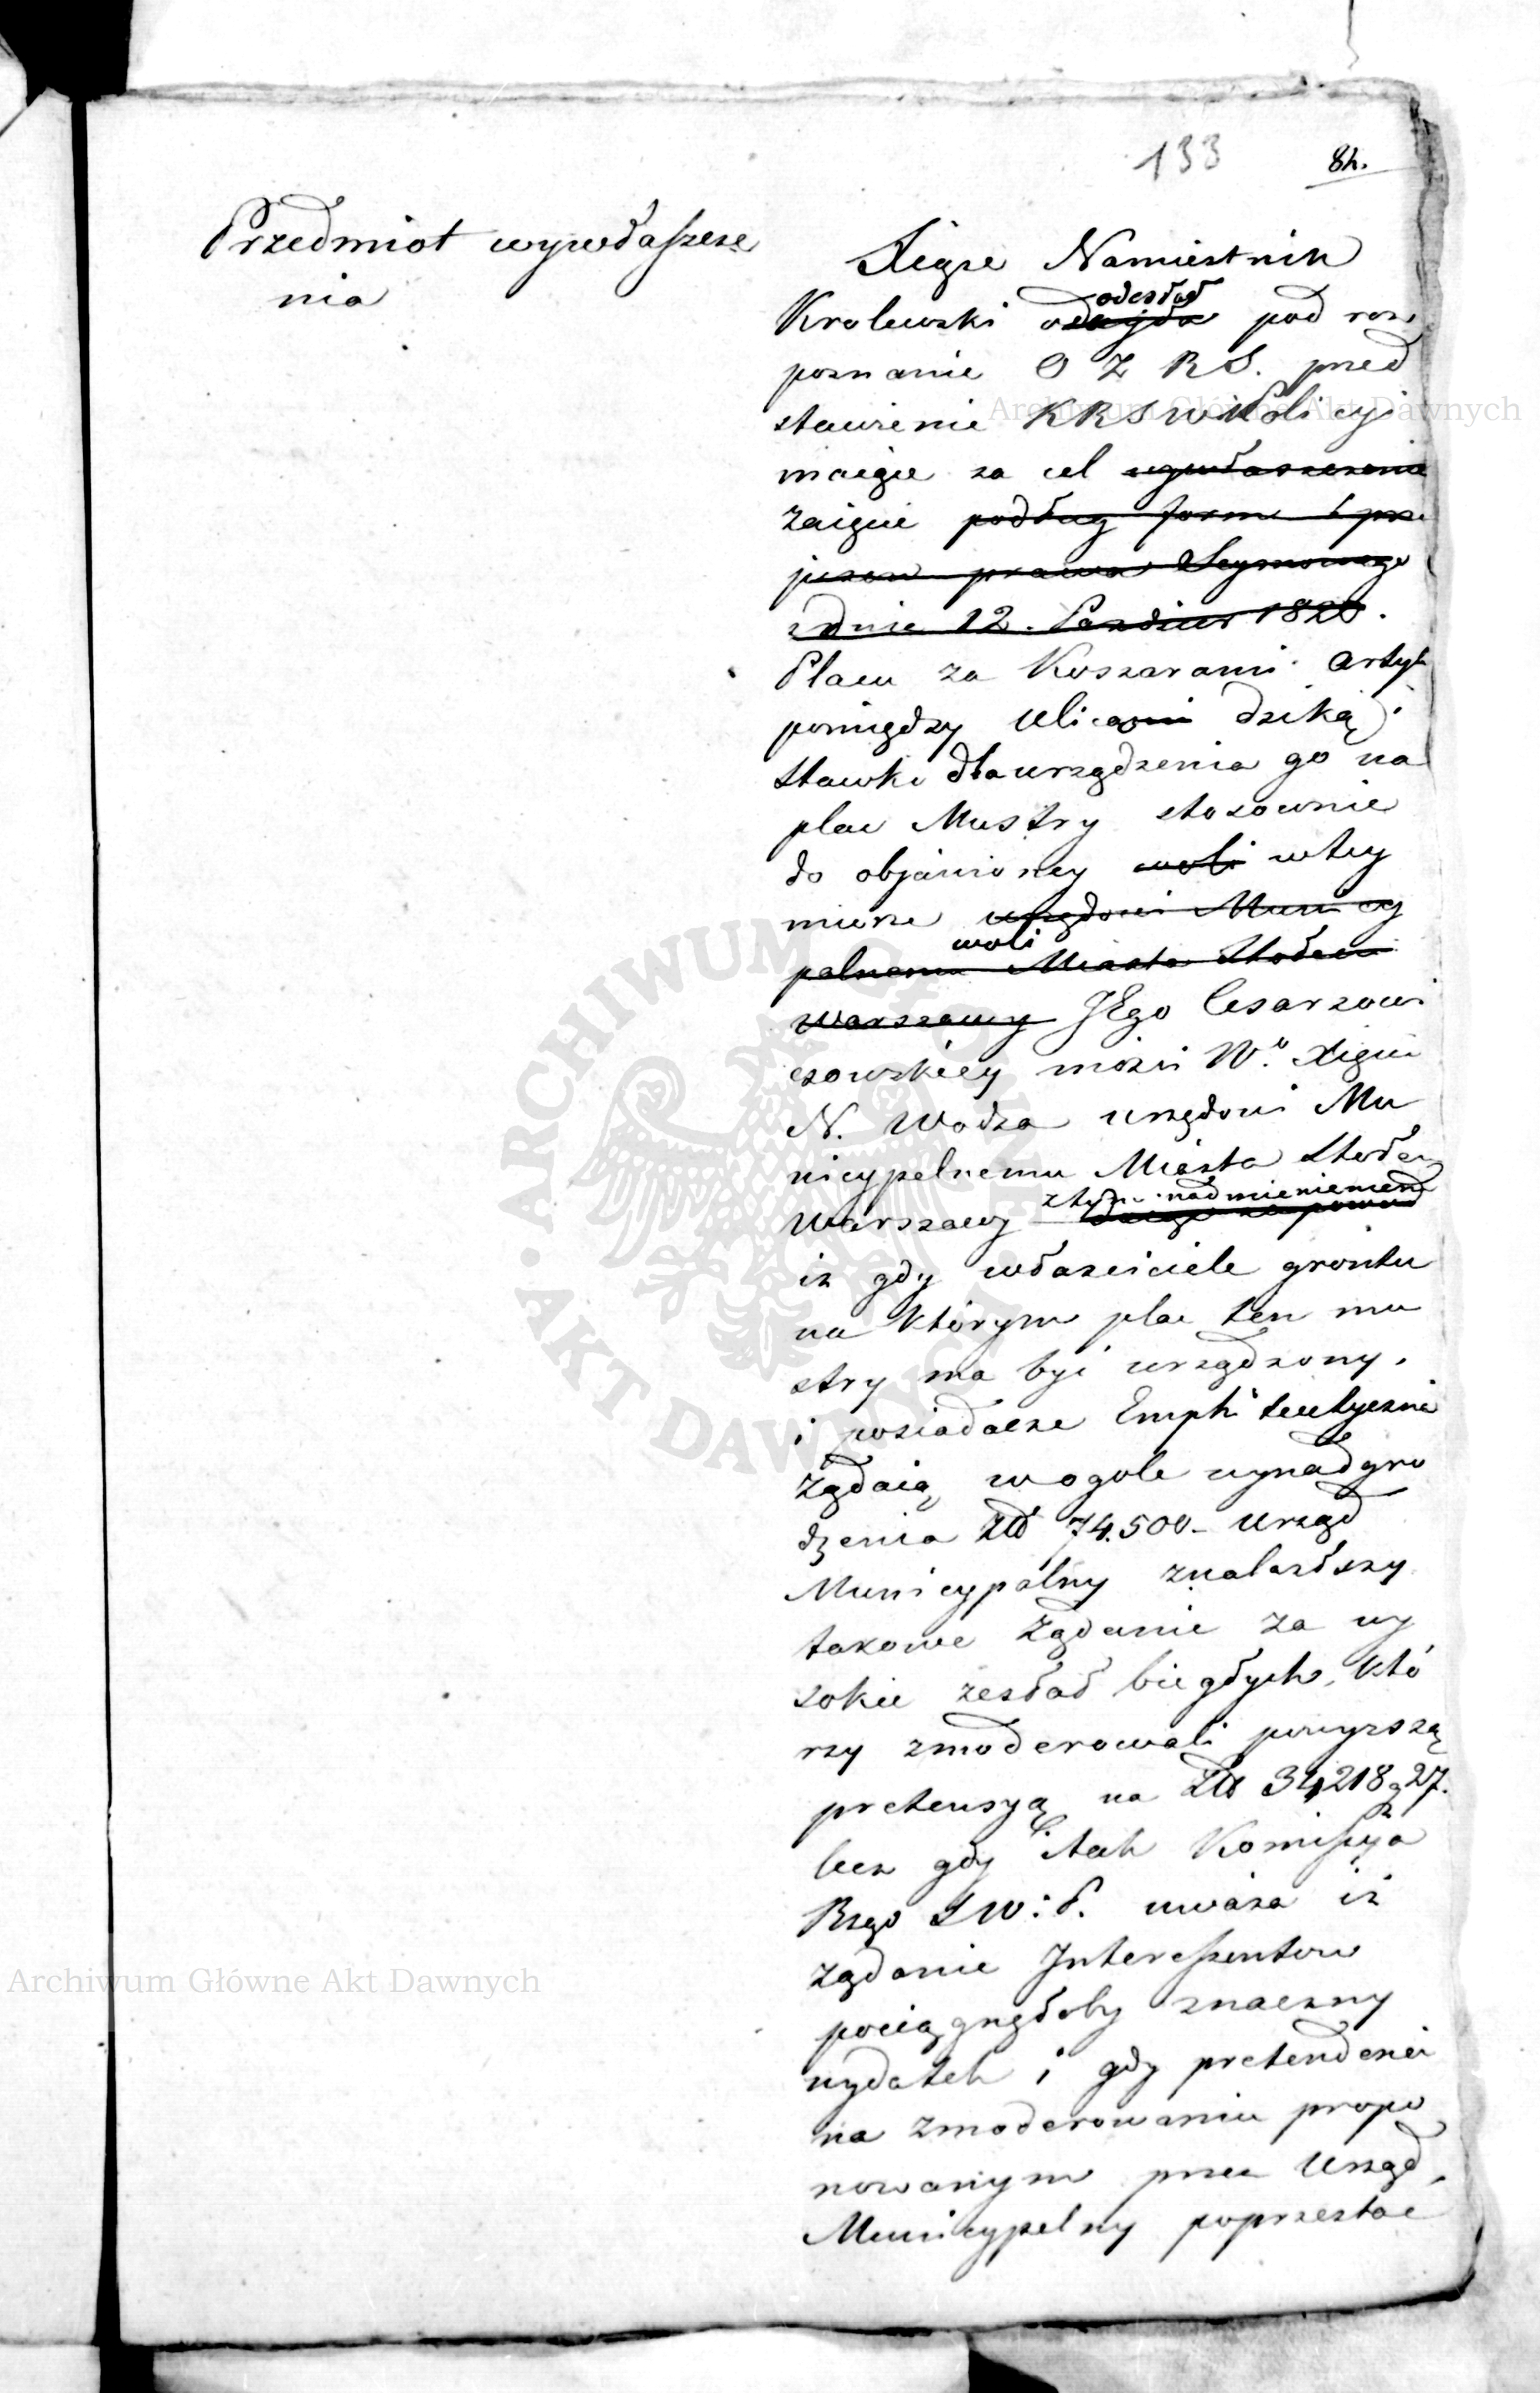 133 82.
Przedmiot wywłaszcze
nia
Xiąże Namiestnik
odesłał
Krolewski oddaje pod roz
poznanie O Z R S. przed
stawienie KRSWiPolicyi
maiące za cel wywłaszczenie
zaięcie podług form i prze
pisow prawa Seymowego
z dnia 12. Pazdzier 1820.
Placu za Koszarami Artyl
pomiędzy Ulicami dziką i
Stawki dla urządzenia go na
plac Mustry stosownie
do objawioney woli w tey
mierze urzędowi Municy
woli
palnemu Miasta Stołecz
Warszawy JEgo Cesarzowi
czowskiey mości Wo. Xięcia
N. Wodza urzędowi Mu
nicypalnemu Miasta Stołecz
z tym nadmienieniem
Warszawy
iż gdy właściciele gruntu
na którym plac ten mu
stry ma być urządzony,
i posiadacze Emphiteutyczni
żądaią w ogole wynadgro
dzenia Złt 74.500 – Urząd
Municypalny znalazłszy
takowe żądanie za wy
sokie zesłał biegłych, któ
rzy zmoderowali powyższą
pretensyą na Złt 34,218 g 27.
lecz gdy i tak Komissyja
Rzgo S W: P. uważa iż
żądanie Interessentow
pociągnęłoby znaczny
wydatek i gdy pretendenci
na zmoderowaniu propo
nowanym przez Urząd
Municypalny poprzestać
Archiwum Główne Akt Dawnych
ARCHIWUM GŁÓWNE AKT DAWNYCH
Archiwum Główne Akt Dawnych